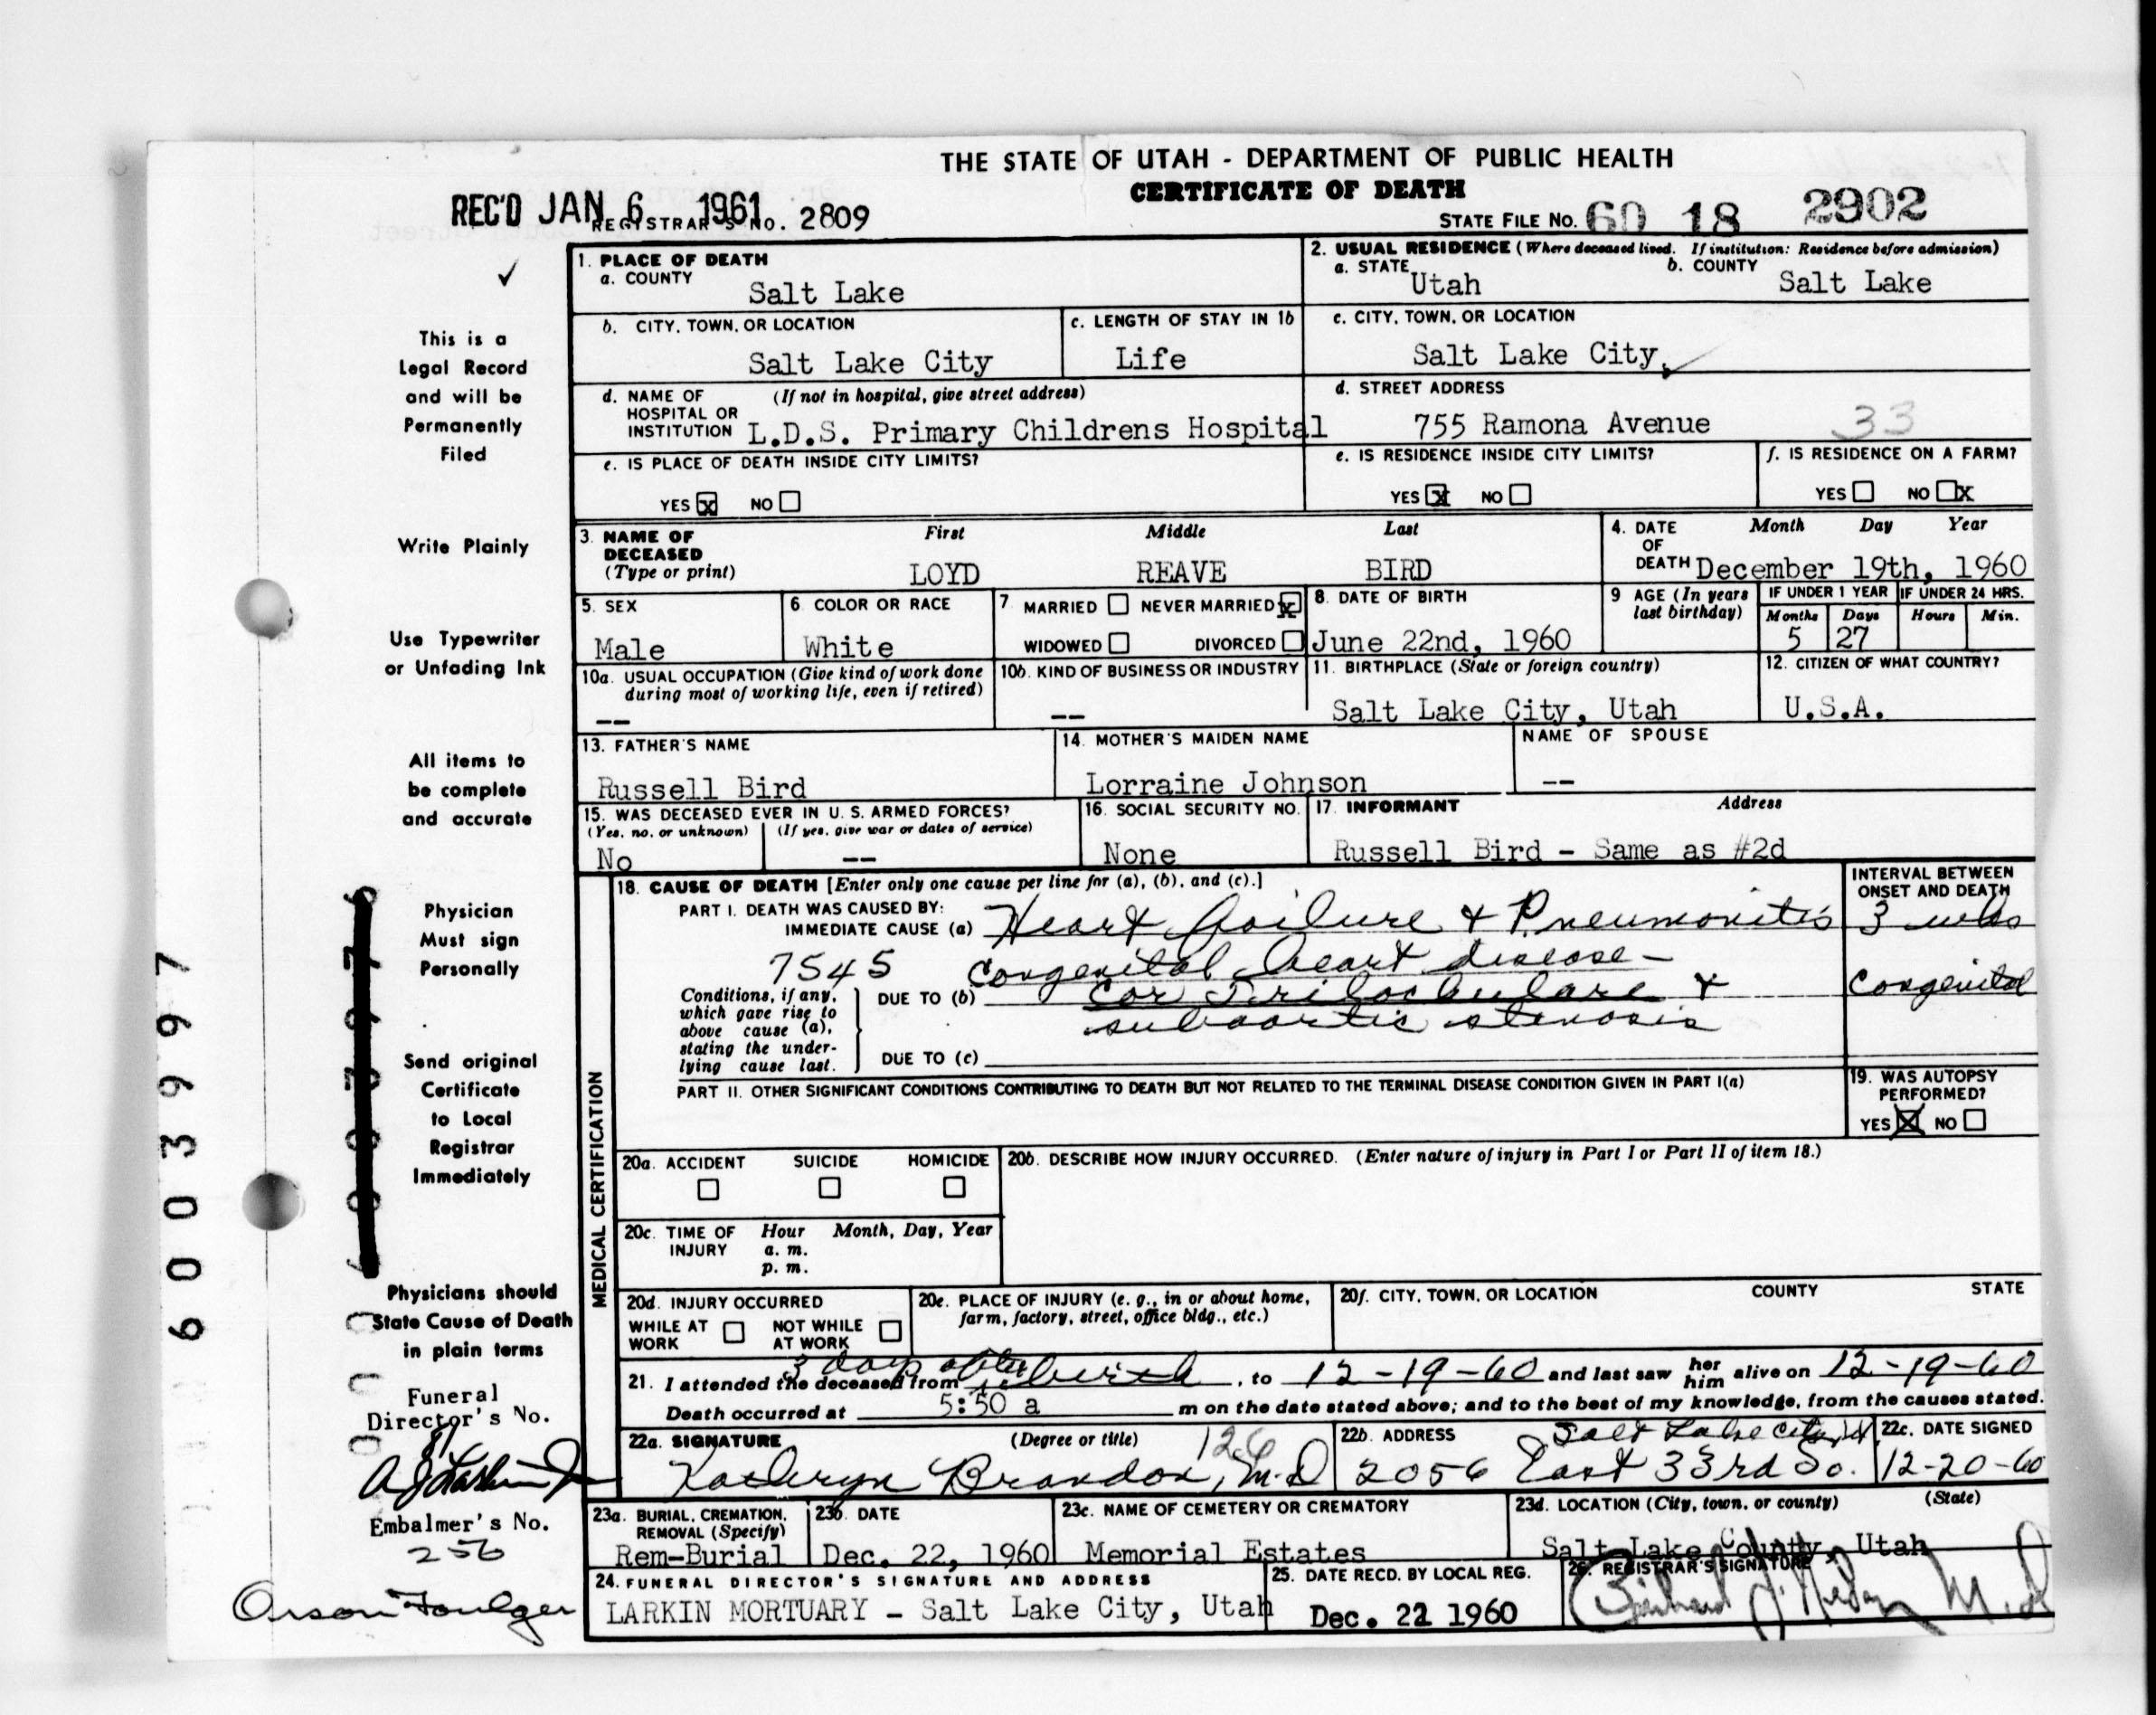 THE STATE OF UTAH - DEPARTMENT OF PUBLIC HEALTH
CERTIFICATE OF DEATH
REC'D JAN 6 1961
REGISTRAR'S NO. 2809
STATE FILE NO. 60 18 2902
This is a
Legal Record
and will be
Permanently
Filed
Write Plainly
Use Typewriter
or Unfading Ink
All items to
be complete
and accurate
Physician
Must sign
Personally
Send original
Certificate
to Local
Registrar
Immediately
Physicians should
State Cause of Death
in plain terms
Funeral
Director's No.
Embalmer's No.
256
Orson Foulger
6003997
1. PLACE OF DEATH
a. COUNTY
Salt Lake
2. USUAL RESIDENCE (Where deceased lived. If institution: Residence before admission)
a. STATE Utah b. COUNTY Salt Lake
b. CITY, TOWN, OR LOCATION
Salt Lake City
c. LENGTH OF STAY IN 1b
Life
c. CITY, TOWN, OR LOCATION
Salt Lake City,
d. NAME OF HOSPITAL OR INSTITUTION (If not in hospital, give street address)
L.D.S. Primary Childrens Hospital
d. STREET ADDRESS
755 Ramona Avenue 33
e. IS PLACE OF DEATH INSIDE CITY LIMITS?
YES X NO
e. IS RESIDENCE INSIDE CITY LIMITS?
YES X NO
f. IS RESIDENCE ON A FARM?
YES NO X
3. NAME OF DECEASED (Type or print)
First Middle Last
LOYD REAVE BIRD
4. DATE OF DEATH Month Day Year
December 19th, 1960
5. SEX
Male
6. COLOR OR RACE
White
7. MARRIED NEVER MARRIED X
WIDOWED DIVORCED
8. DATE OF BIRTH
June 22nd, 1960
9. AGE (In years last birthday)
IF UNDER 1 YEAR IF UNDER 24 HRS.
Months Days Hours Min.
5 27
10a. USUAL OCCUPATION (Give kind of work done during most of working life, even if retired)
--
10b. KIND OF BUSINESS OR INDUSTRY
--
11. BIRTHPLACE (State or foreign country)
Salt Lake City, Utah
12. CITIZEN OF WHAT COUNTRY?
U.S.A.
13. FATHER'S NAME
Russell Bird
14. MOTHER'S MAIDEN NAME
Lorraine Johnson
NAME OF SPOUSE
--
15. WAS DECEASED EVER IN U. S. ARMED FORCES?
(Yes, no, or unknown) (If yes, give war or dates of service)
No --
16. SOCIAL SECURITY NO.
None
17. INFORMANT Address
Russell Bird - Same as #2d
MEDICAL CERTIFICATION
18. CAUSE OF DEATH [Enter only one cause per line for (a), (b), and (c).]
INTERVAL BETWEEN ONSET AND DEATH
PART I. DEATH WAS CAUSED BY:
IMMEDIATE CAUSE (a) Heart failure & Pneumonitis 3 wks
7545 Congenital heart disease -
Conditions, if any, which gave rise to above cause (a), stating the underlying cause last.
DUE TO (b) Cor Triloculare & Congenital
subaortic stenosis
DUE TO (c)
PART II. OTHER SIGNIFICANT CONDITIONS CONTRIBUTING TO DEATH BUT NOT RELATED TO THE TERMINAL DISEASE CONDITION GIVEN IN PART I(a)
19. WAS AUTOPSY PERFORMED?
YES X NO
20a. ACCIDENT SUICIDE HOMICIDE
20b. DESCRIBE HOW INJURY OCCURRED. (Enter nature of injury in Part I or Part II of item 18.)
20c. TIME OF INJURY Hour Month, Day, Year
a. m.
p. m.
20d. INJURY OCCURRED
WHILE AT WORK NOT WHILE AT WORK
20e. PLACE OF INJURY (e. g., in or about home, farm, factory, street, office bldg., etc.)
20f. CITY, TOWN, OR LOCATION COUNTY STATE
21. I attended the deceased from 3 days after birth, to 12-19-60 and last saw her him alive on 12-19-60
Death occurred at 5:50 a m on the date stated above; and to the best of my knowledge, from the causes stated.
22a. SIGNATURE (Degree or title) 126
Kathryn Brandon, M.D
22b. ADDRESS Salt Lake City
2056 East 33rd So.
22c. DATE SIGNED
12-20-60
23a. BURIAL, CREMATION, REMOVAL (Specify)
Rem-Burial
23b. DATE
Dec. 22, 1960
23c. NAME OF CEMETERY OR CREMATORY
Memorial Estates
23d. LOCATION (City, town, or county) (State)
Salt Lake County, Utah
24. FUNERAL DIRECTOR'S SIGNATURE AND ADDRESS
LARKIN MORTUARY - Salt Lake City, Utah
25. DATE RECD. BY LOCAL REG.
Dec. 22 1960
26. REGISTRAR'S SIGNATURE